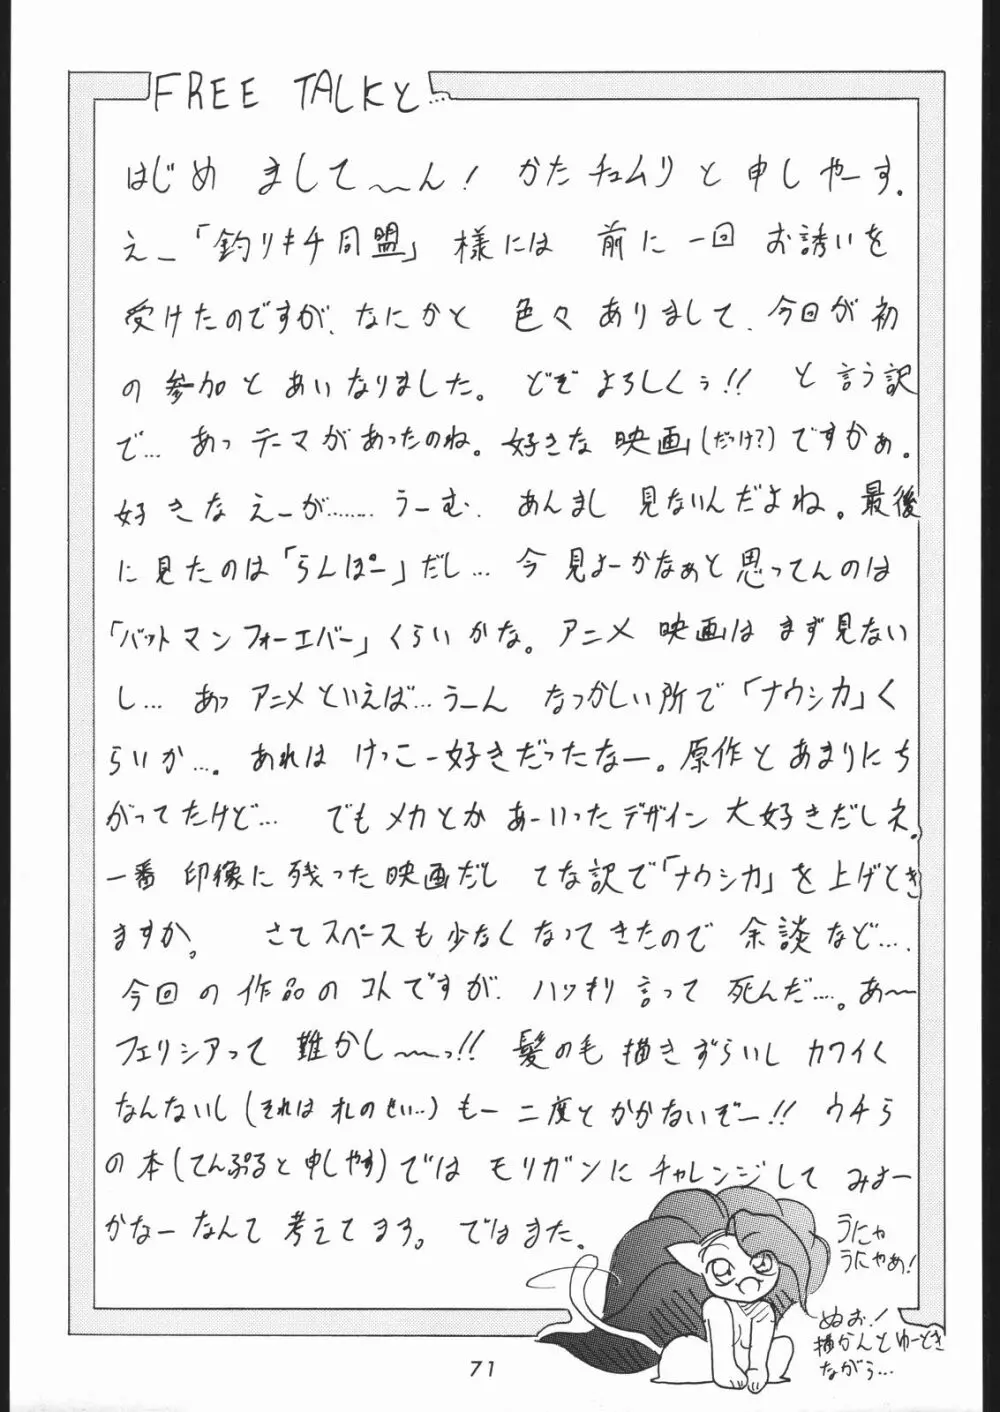 FREE TALKと…
はじめ ましてーん! かたチュムリ と 申しやーす.
え_「釣りキチ同盟」様には 前に 一回 お誘いを
受けたのですが、なにかと 色々 ありまして、今回が 初
の 参加と あいなりました。どぞ よろしくぅ!! と 言う訳
で… あっ テーマがあったのね。好きな 映画(だっけ?)ですかぁ。
好きな えーが……… うーむ、あんまし 見ないんだよね。最後
に見たのは「らんぽー」だし… 今 見よーかなぁと思ってんのは
「バットマンフォーエバー」くらいかな。アニメ 映画は まず見ない
し… あっ アニメ といえば… うーん なつかしい所で「ナウシカ」く
らいか…. あれは けっこー好きだったなー。原作と あまりにち
がってたけど… でも メカとか あーいったデザイン 大好きだしネ。
一番 印像に 残った 映画だし てな訳で「ナウシカ」を上げとき
ますか。 さてスペースも少なくなってきたので 余談など….
今回の 作品の コトですが、ハッキリ 言って 死んだ…。あ〜
フェリシアって 難かし〜〜っ!! 髪の毛 描きずらいし カワイく
なんないし(それは オレのせい…)もー 二度と かかないぞー!! ウチら
の本(てんぷると申しやす)では モリガンに チャレンジして みよー
かなー なんて 考えてます。ではまた。
うにゃ
うにゃあ!
ぬお!
描かんとゆーとき
ながら…
71